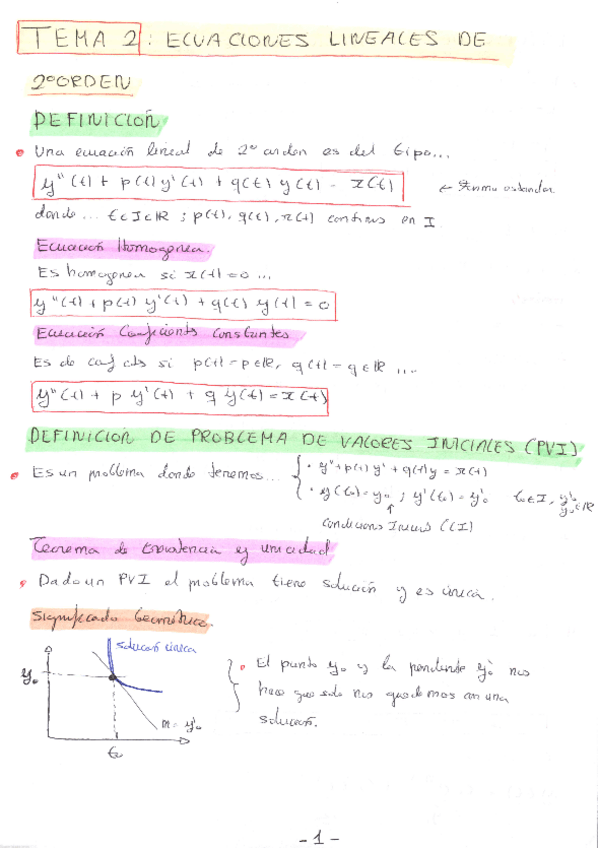 TEMA 2: ECUACIONES LINEALES DE
2º ORDEN
DEFINICIÓN
• Una ecuación lineal de 2º orden es del tipo...
y''(t) + p(t) y'(t) + q(t) y(t) = r(t) ← Forma estandar
donde ... t ∈ I ⊂ ℝ ; p(t), q(t), r(t) continuas en I
Ecuación Homogenea.
Es homogenea si r(t) = 0 ...
y''(t) + p(t) y'(t) + q(t) y(t) = 0
Ecuación Coeficientes Constantes
Es de coef cts si p(t) = p ∈ ℝ, q(t) = q ∈ ℝ ...
y''(t) + p y'(t) + q y(t) = r(t)
DEFINICIÓN DE PROBLEMA DE VALORES INICIALES (PVI)
• Es un problema donde tenemos... { • y'' + p(t) y' + q(t) y = r(t)
• y(t₀) = y₀ ; y'(t₀) = y'₀ t₀ ∈ I, y₀, y'₀ ∈ ℝ
↑
Condiciones Iniciales (CI)
Teorema de Existencia y unicidad
• Dado un PVI el problema tiene solución y es única.
Significado Geométrico.
solución única
y₀
m = y'₀
t₀
• El punto y₀ y la pendiente y'₀ nos
hace que solo nos quedemos con una
solución.
- 1 -